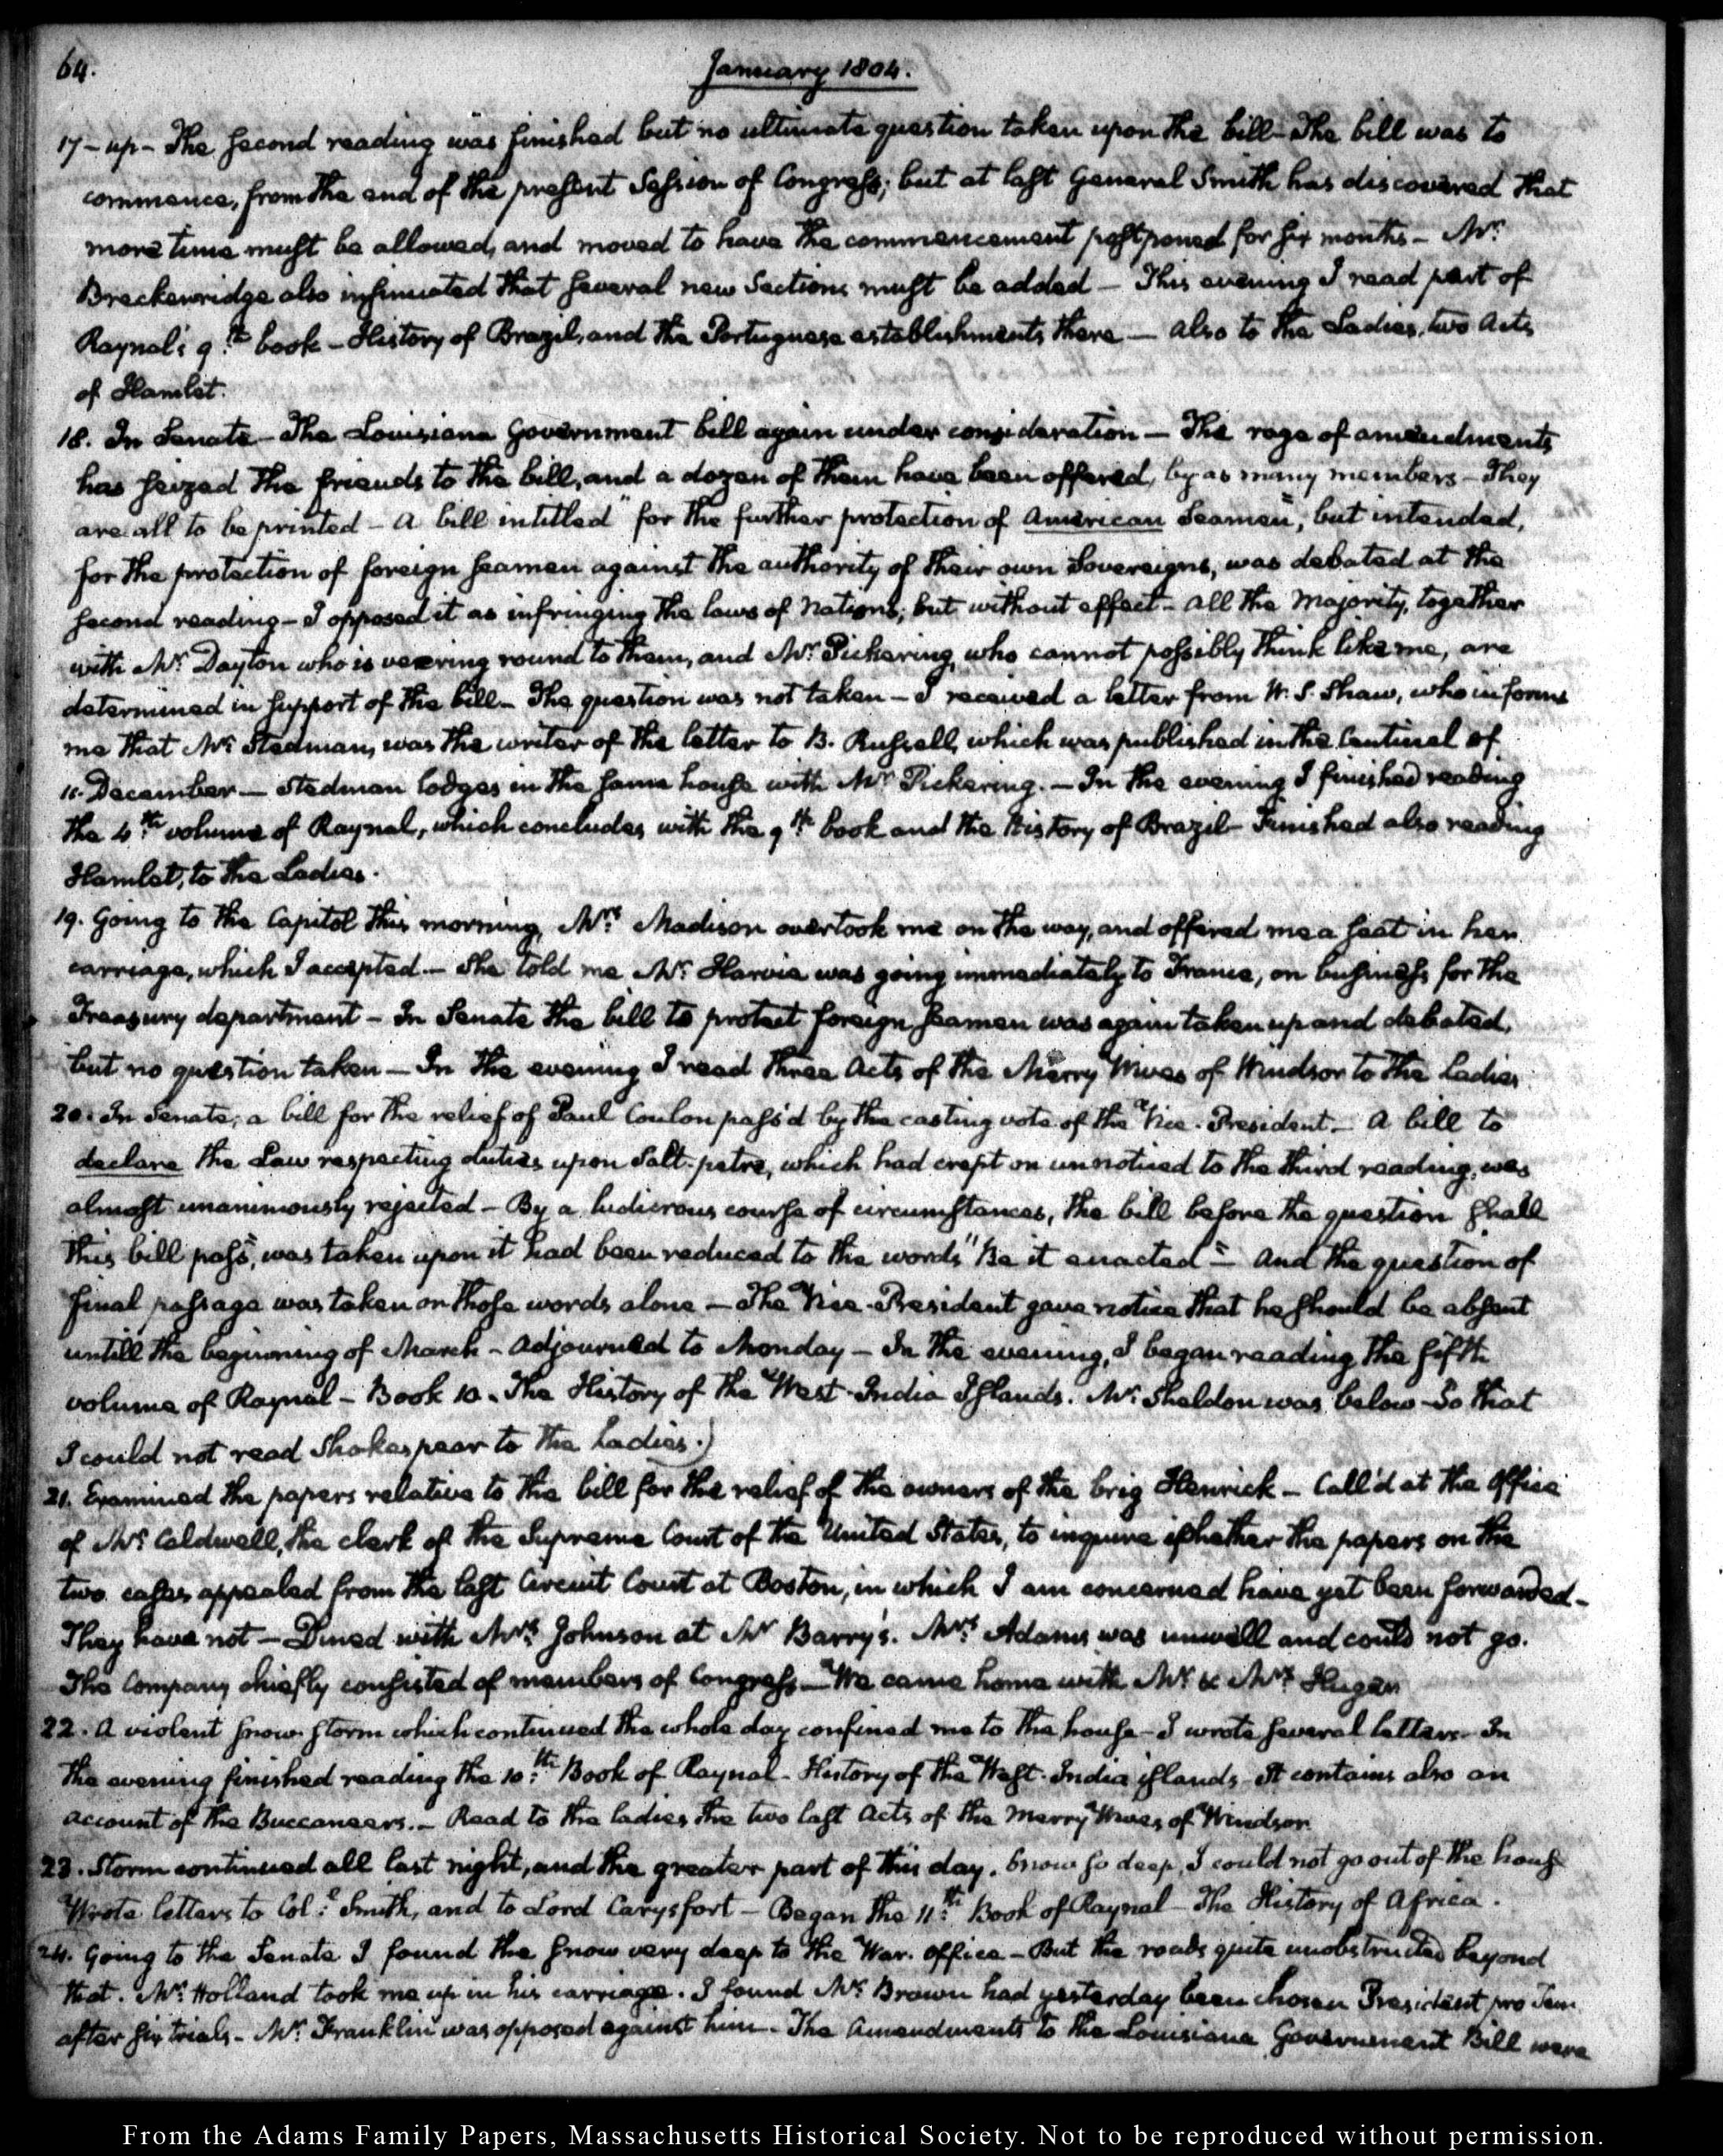 64.
January 1804.
17 - up - The second reading was finished but no ultimate question taken upon the bill - The bill was to
commence, from the end of the present Session of Congress; but at last General Smith has discovered that
more time must be allowed, and moved to have the commencement postponed for six months - Mr.
Breckenridge also insinuated that several new Sections must be added - This evening I read part of
Raynal's 9.th book - History of Brazil, and the Portuguese establishments there - also to the Ladies, two Acts
of Hamlet.
18. In Senate - The Louisiana Government bill again under consideration - The rage of amendments
has seized the friends to the bill, and a dozen of them have been offered, by as many members - They
are all to be printed - A bill intitled "for the further protection of American Seamen", but intended,
for the protection of foreign seamen against the authority of their own Sovereigns, was debated at the
second reading - I opposed it as infringing the laws of Nations; but without effect - All the Majority, together
with Mr. Dayton who is veering round to them, and Mr. Pickering, who cannot possibly think like me, are
determined in support of the bill - The question was not taken - I received a letter from W. S. Shaw, who informs
me that Mr. Stedman, was the writer of the letter to B. Russell, which was published in the Centinel of
December - Stedman lodges in the same house with Mr. Pickering. - In the evening I finished reading
the 4.th volume of Raynal, which concludes with the 9.th book and the History of Brazil - Finished also reading
Hamlet, to the Ladies.
19. Going to the Capitol this morning, Mrs. Madison overtook me on the way, and offered me a seat in her
carriage, which I accepted - She told me Mr. Harvie was going immediately to France, on business for the
Treasury department - In Senate the bill to protect foreign seamen was again taken up and debated,
but no question taken - In the evening I read three Acts of the Merry Wives of Windsor to the Ladies.
20. In Senate, a bill for the relief of Paul Coulon pass'd by the casting vote of the Vice-President - A bill to
declare the Law respecting duties upon Salt-petre, which had crept on unnoticed to the third reading, was
almost unanimously rejected - By a ludicrous course of circumstances, the bill before the question shall
this bill pass, was taken upon it had been reduced to the words "Be it enacted" - And the question of
final passage was taken on those words alone - The Vice-President gave notice that he should be absent
untill the beginning of March - Adjourned to Monday - In the evening, I began reading the fifth
volume of Raynal - Book 10. The History of the West-India Islands. Mr. Sheldon was below - So that
I could not read Shakespear to the Ladies.)
21. Examined the papers relative to the bill for the relief of the owners of the brig Henrick - Call'd at the Office
of Mr. Caldwell, the clerk of the Supreme Court of the United States, to inquire whether the papers on the
two cases appealed from the last Circuit Court at Boston, in which I am concerned have yet been forwarded -
They have not - Dined with Mrs. Johnson at Mr Barry's. Mrs. Adams was unwell and could not go.
The Company chiefly consisted of members of Congress - We came home with Mr. & Mrs. Huger
22. A violent snow-storm which continued the whole day confined me to the house - I wrote several letters - In
the evening finished reading the 10.th Book of Raynal - History of the West-India islands - It contains also an
account of the Buccaneers. - Read to the ladies the two last Acts of the Merry Wives of Windsor
23. Storm continued all last night, and the greater part of this day. Snow so deep, I could not go out of the house
Wrote letters to Col.l Smith, and to Lord Carysfort - Began the 11.th Book of Raynal - The History of Africa.
24. Going to the Senate I found the snow very deep to the War-office - But the roads quite unobstructed beyond
that. Mr. Holland took me up in his carriage. I found Mr. Brown had yesterday been chosen President pro Tem
after six trials - Mr. Franklin was opposed against him - The Amendments to the Louisiana Government Bill were
From the Adams Family Papers, Massachusetts Historical Society. Not to be reproduced without permission.